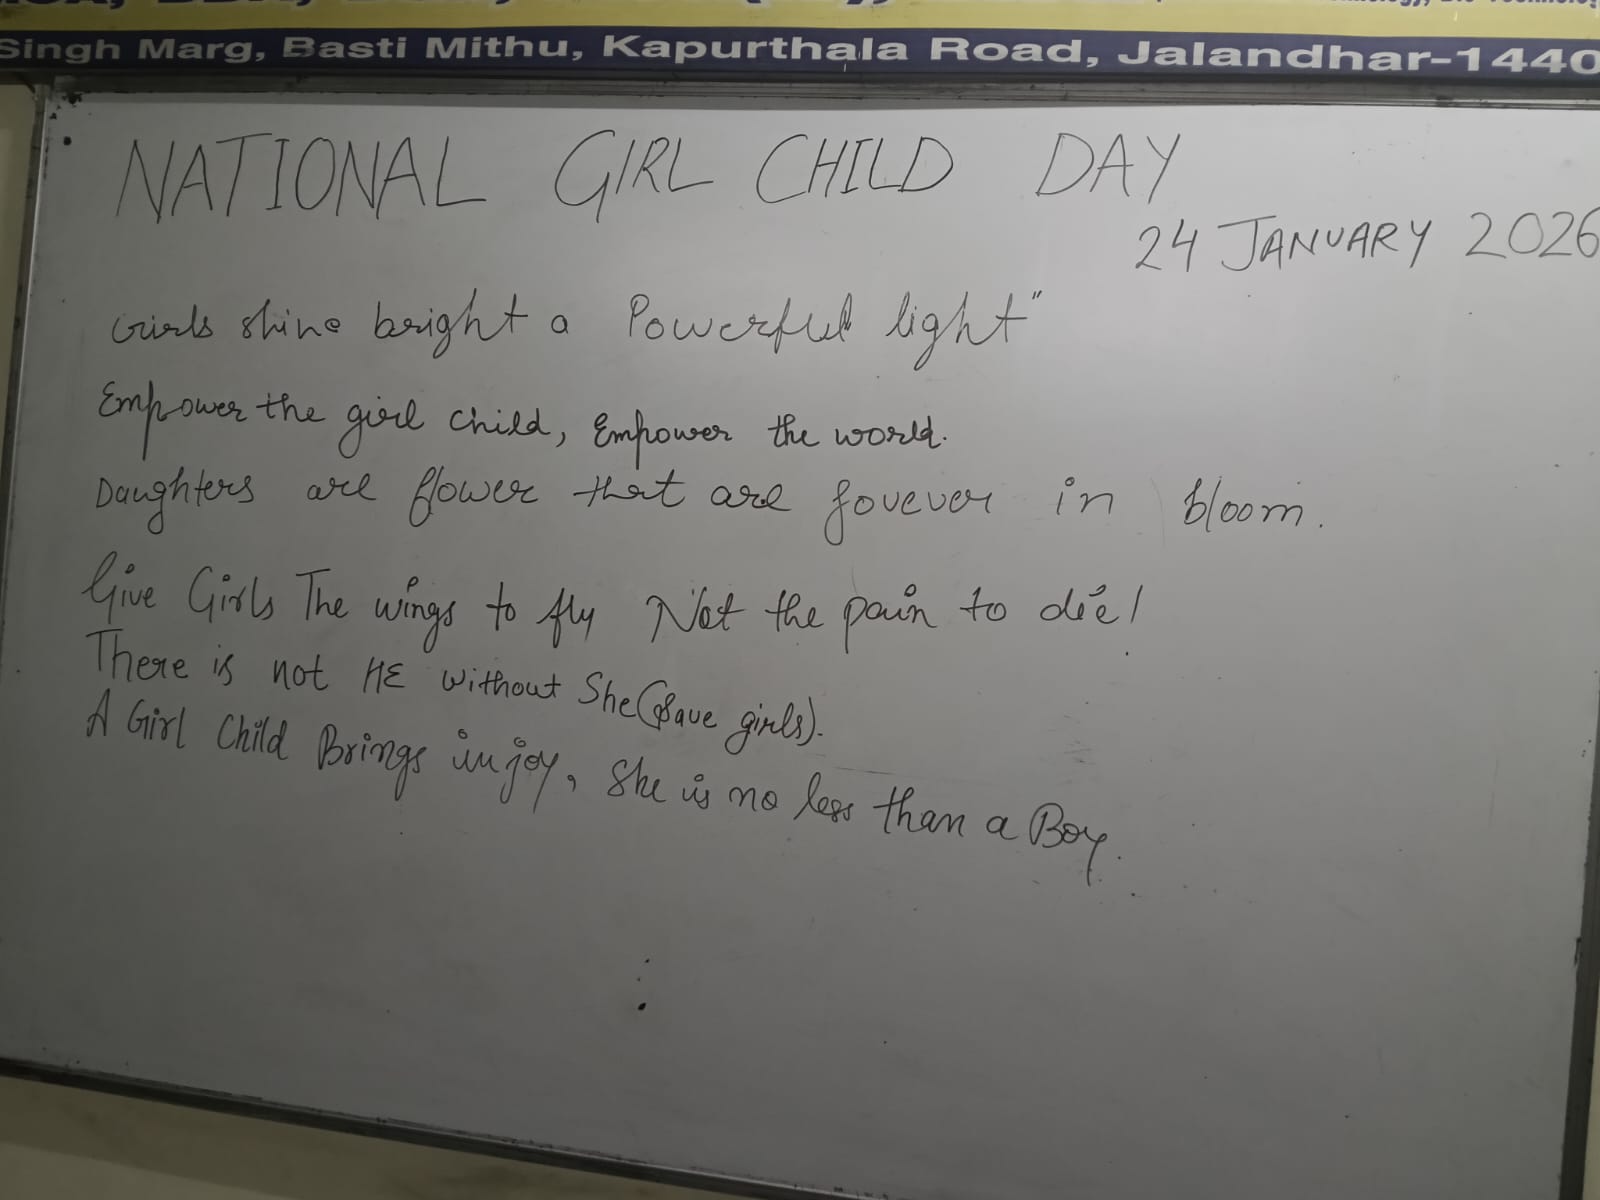 Singh Marg, Basti Mithu, Kapurthala Road, Jalandhar-1440
NATIONAL GIRL CHILD DAY
24 JANUARY 2026
Girls shine bright a Powerful light"
Empower the girl child, Empower the world.
Daughters are flower that are fovever in bloom.
Give Girls The wings to fly Not the pain to die!
There is not HE without She (Save girls).
A Girl Child Brings in joy, She is no less than a Boy.